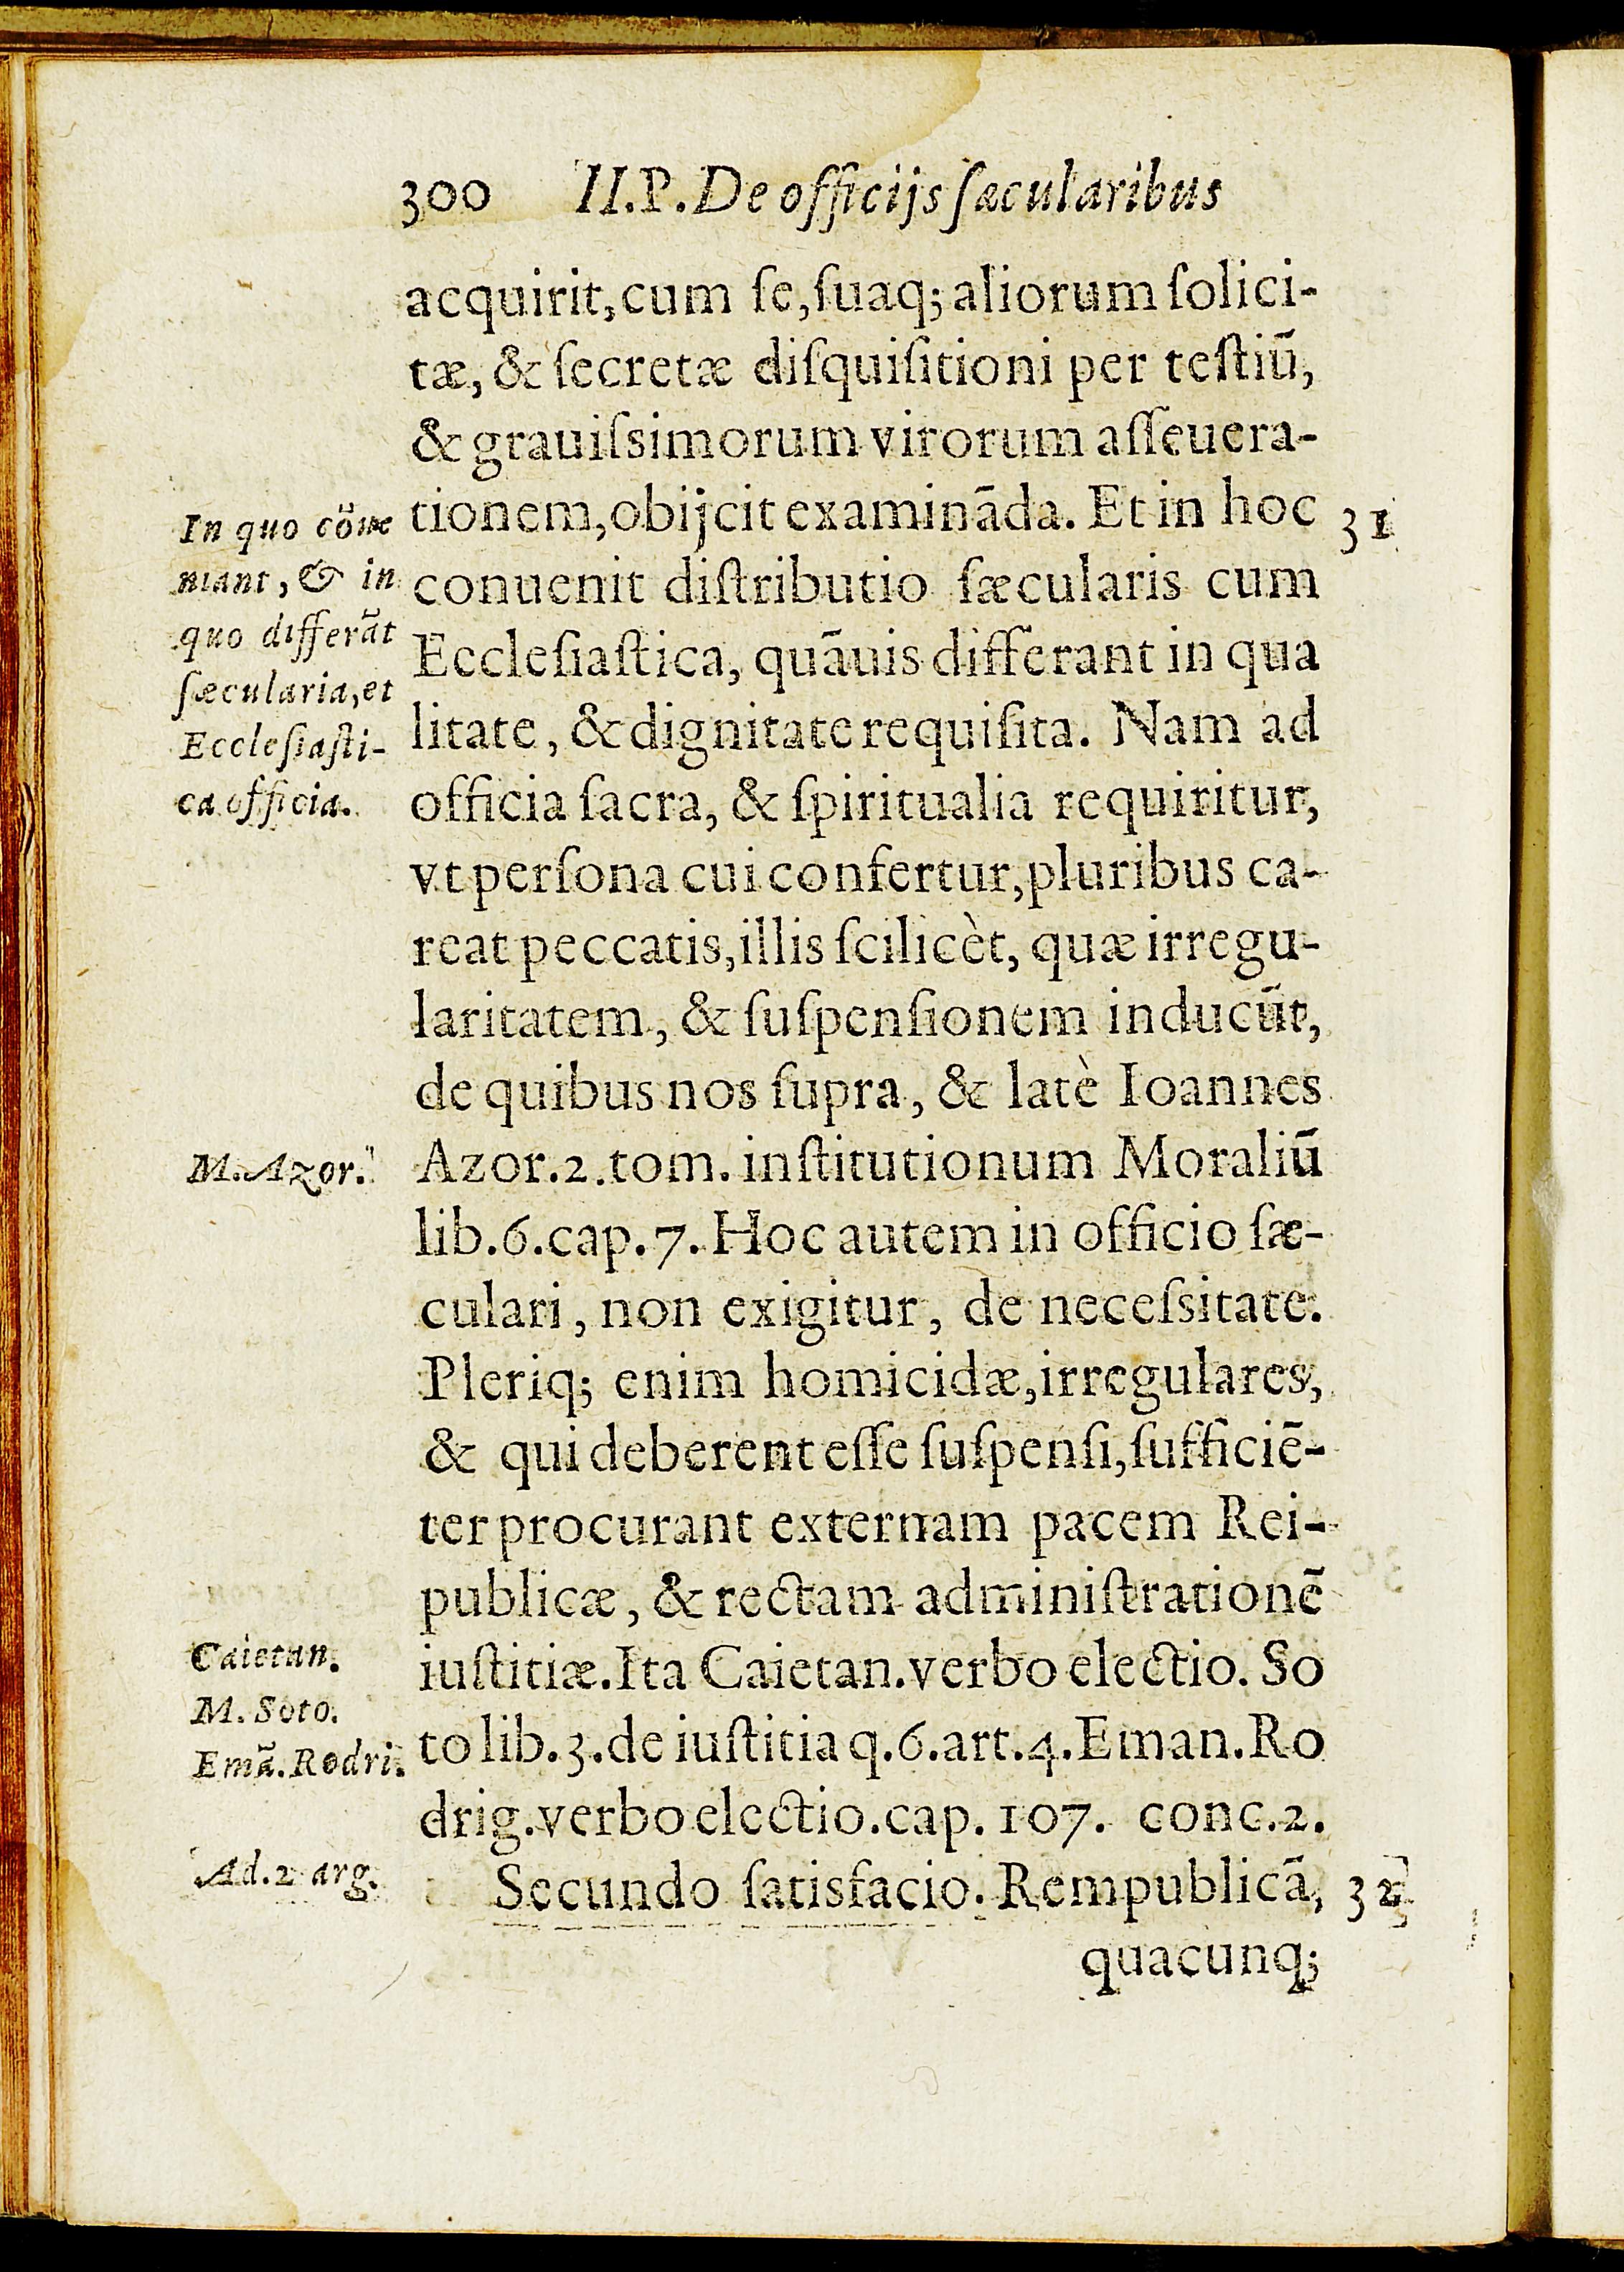 300 II.P.De officijs ſæcularibus
acquirit,cum ſe,ſuaq; aliorum ſolici-
tæ, & ſecretæ diſquiſitioni per teſtiū,
& grauiſsimorum virorum aſſeuera-
tionem,obijcit examināda. Et in hoc
31
conuenit diſtributio ſæcularis cum
Eccleſiaſtica, quāuis differant in qua
litate, & dignitate requiſita. Nam ad
officia ſacra, & ſpiritualia requiritur,
vt perſona cui confertur,pluribus ca-
reat peccatis,illis ſcilicèt, quæ irregu-
laritatem, & ſuſpenſionem inducūt,
de quibus nos ſupra, & latè Ioannes
Azor.2.tom. inſtitutionum Moraliū
lib.6.cap.7. Hoc autem in officio ſæ-
culari, non exigitur, de neceſsitate.
Pleriq; enim homicidæ,irregulares,
& qui deberent eſſe ſuſpenſi,ſufficiē-
ter procurant externam pacem Rei-
publicæ, & rectam adminiſtrationē
iuſtitiæ. Ita Caietan.verbo electio. So
to lib.3.de iuſtitia q.6.art.4.Eman.Ro
drig.verbo electio.cap. 107. conc.2.
Secundo ſatisfacio. Rempublicā,
32
quacunq;
In quo cōue
niant, & in
quo differāt
ſæcularia,et
Eccleſiaſti-
ca officia.
M. Azor.
Caietan.
M. Soto.
Emā.Rodri.
Ad.2 arg.